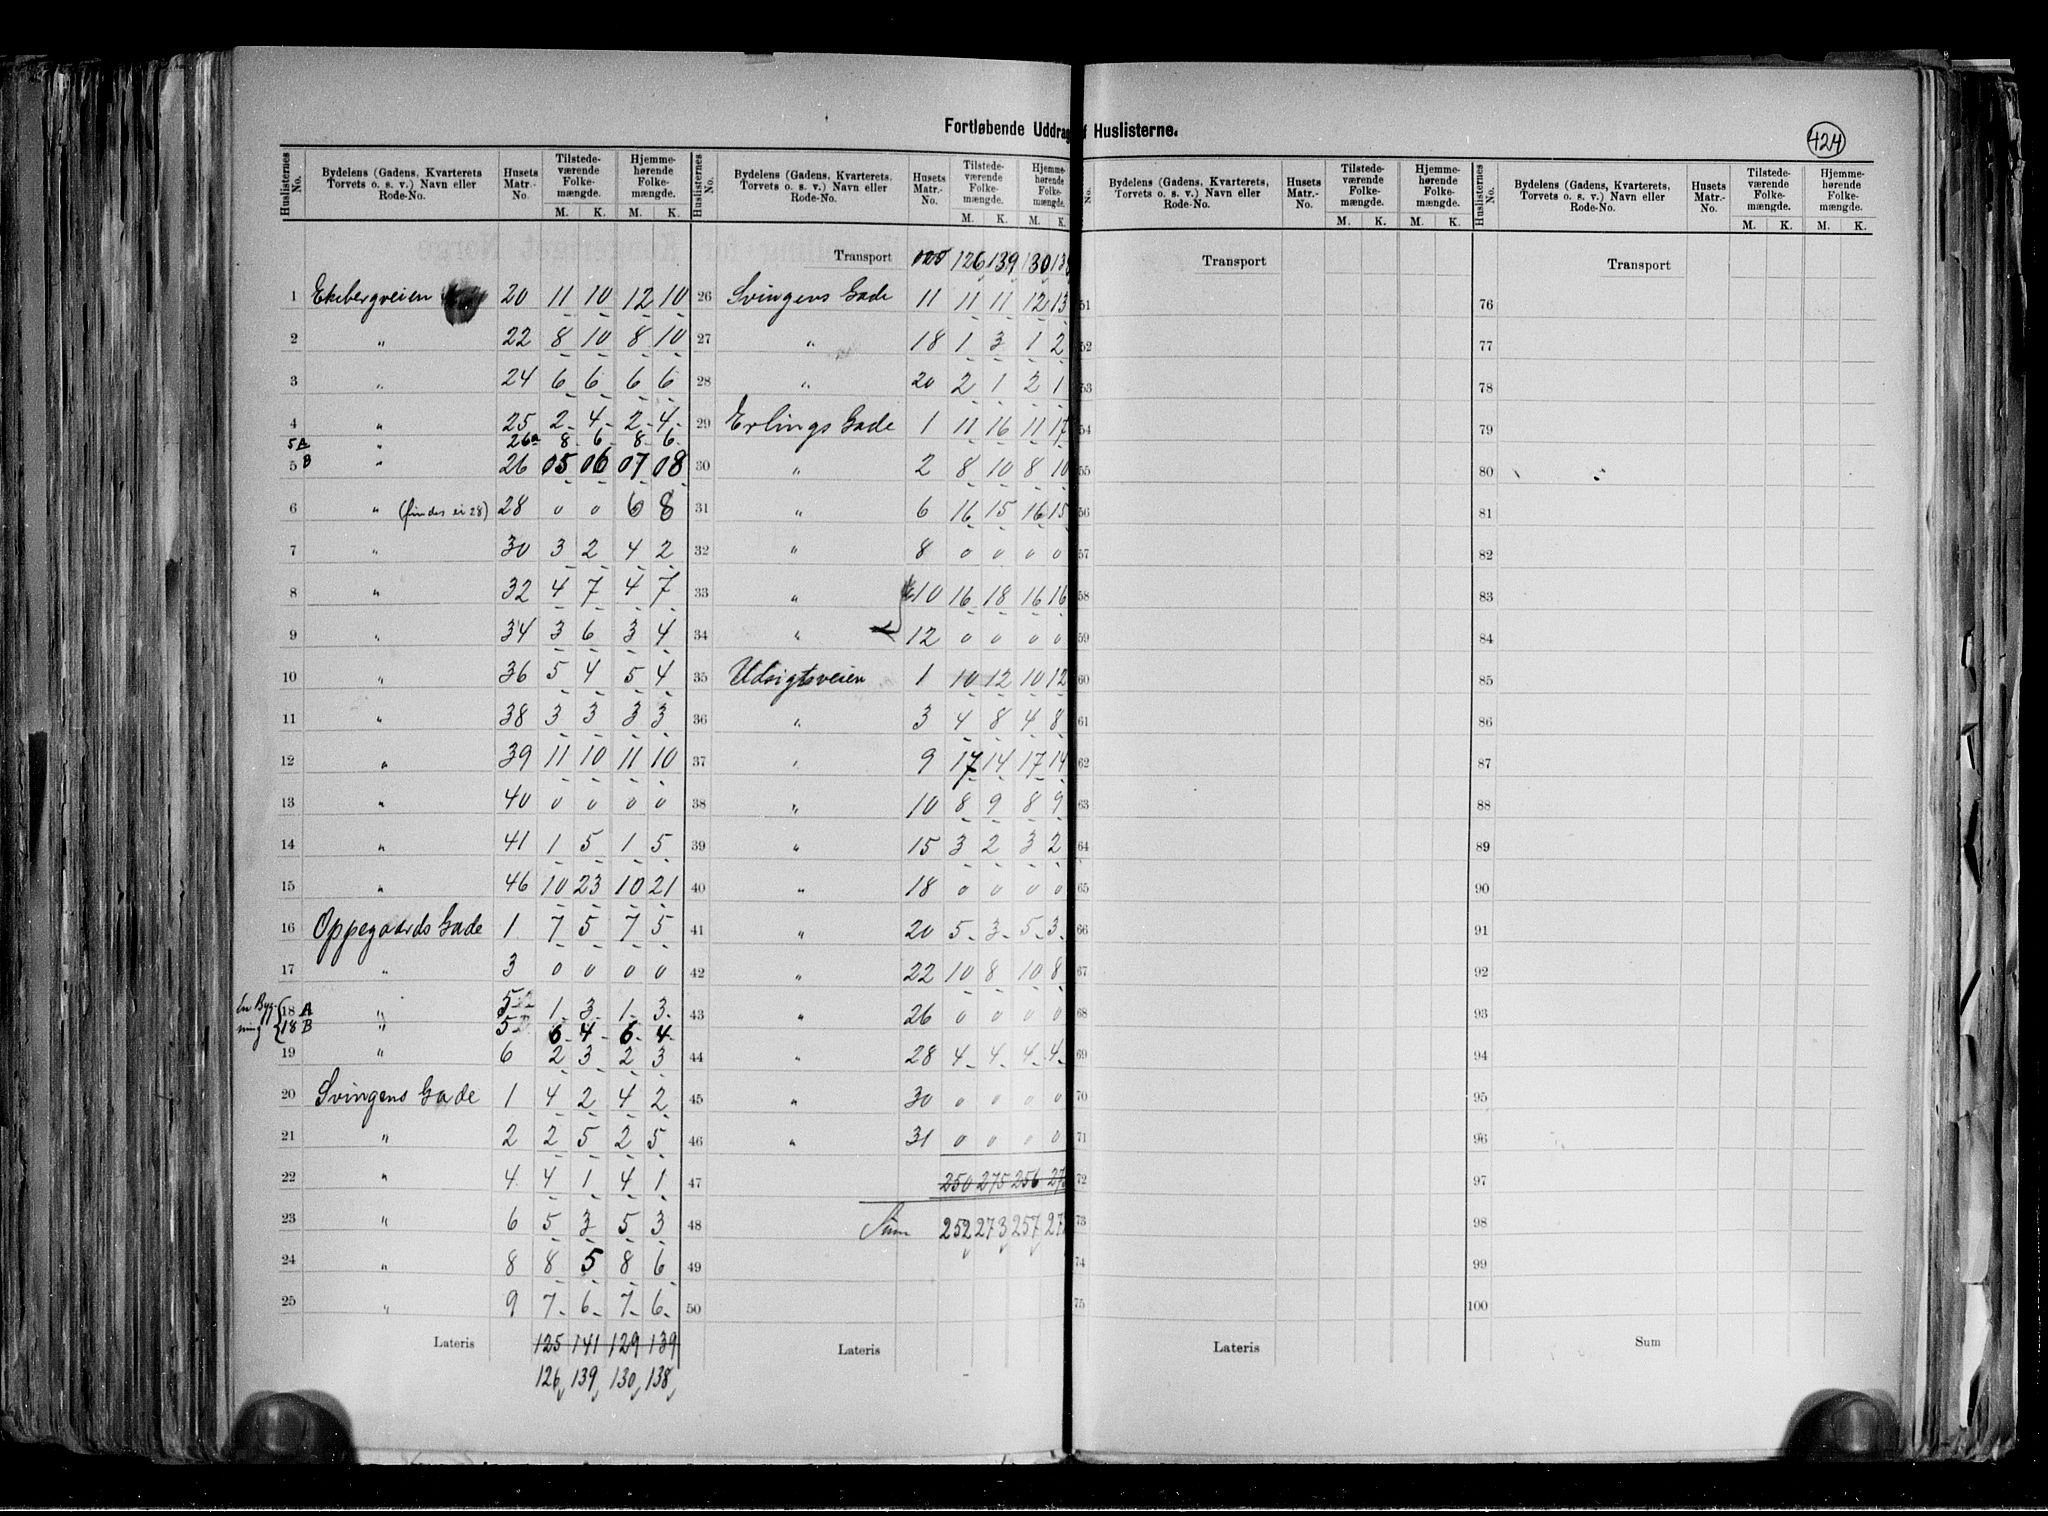 Fortløbende Uddrag af Huslisterne.
424
Huslisternes No. Bydelens (Gadens, Kvarterets Torvets o. s. v.) Navn eller Rode-No. Husets Matr.-No. Tilstedeværende Folkemængde. M. K. Hjemmehørende Folkemængde. M. K.
1 Ekebergveien 20 11 10 12 10
2 " 22 8 10 8 10
3 " 24 6 6 6 6
4 " 25 2 4 2 4
5 A " 26a 8 6 8 6
5 B " 26 05 06 07 08
6 " (findes ei 28) 28 0 0 6 8
7 " 30 3 2 4 2
8 " 32 4 7 4 7
9 " 34 3 6 3 4
10 " 36 5 4 5 4
11 " 38 3 3 3 3
12 " 39 11 10 11 10
13 " 40 0 0 0 0
14 " 41 1 5 1 5
15 " 46 10 23 10 21
16 Oppegaards Gade 1 7 5 7 5
17 " 3 0 0 0 0
En Bygning
18 A " 5 A 1 3 1 3
18 B " 5 B 6 4 6 4
19 " 6 2 3 2 3
20 Svingens Gade 1 4 2 4 2
21 " 2 2 5 2 5
22 " 4 4 1 4 1
23 " 6 5 3 5 3
24 " 8 8 5 8 6
25 " 9 7 6 7 6
Lateris 125 141 129 139
126 139 130 138
Huslisternes No. Bydelens (Gadens, Kvarterets, Torvets o. s. v.) Navn eller Rode-No. Husets Matr.-No. Tilstedeværende Folkemængde. M. K. Hjemmehørende Folkemængde. M. K.
Transport 125 126 139 130 138
26 Svingens Gade 11 11 11 12 13
27 " 18 1 3 1 2
28 " 20 2 1 2 1
29 Erlings Gade 1 11 16 11 17
30 " 2 8 10 8 10
31 " 6 16 15 16 15
32 " 8 0 0 0 0
33 " 10 16 18 16 16
34 " 12 0 0 0 0
35 Udsigtsveien 1 10 12 10 12
36 " 3 4 8 4 8
37 " 9 17 14 17 14
38 " 10 8 9 8 9
39 " 15 3 2 3 2
40 " 18 0 0 0 0
41 " 20 5 3 5 3
42 " 22 10 8 10 8
43 " 26 0 0 0 0
44 " 28 4 4 4 4
45 " 30 0 0 0 0
46 " 31 0 0 0 0
47 250 275 256 27
48 Sum 252 273 257 27
49
50
Lateris
No. Bydelens (Gadens, Kvarterets, Torvets o. s. v.) Navn eller Rode-No. Husets Matr.-No. Tilstedeværende Folkemængde. M. K. Hjemmehørende Folkemængde. M. K.
Transport
51
52
53
54
55
56
57
58
59
60
61
62
63
64
65
66
67
68
69
70
71
72
73
74
75
Lateris
Huslisternes No. Bydelens (Gadens, Kvarterets, Torvets o. s. v.) Navn eller Rode-No. Husets Matr.-No. Tilstedeværende Folkemængde. M. K. Hjemmehørende Folkemængde. M. K.
Transport
76
77
78
79
80
81
82
83
84
85
86
87
88
89
90
91
92
93
94
95
96
97
98
99
100
Sum